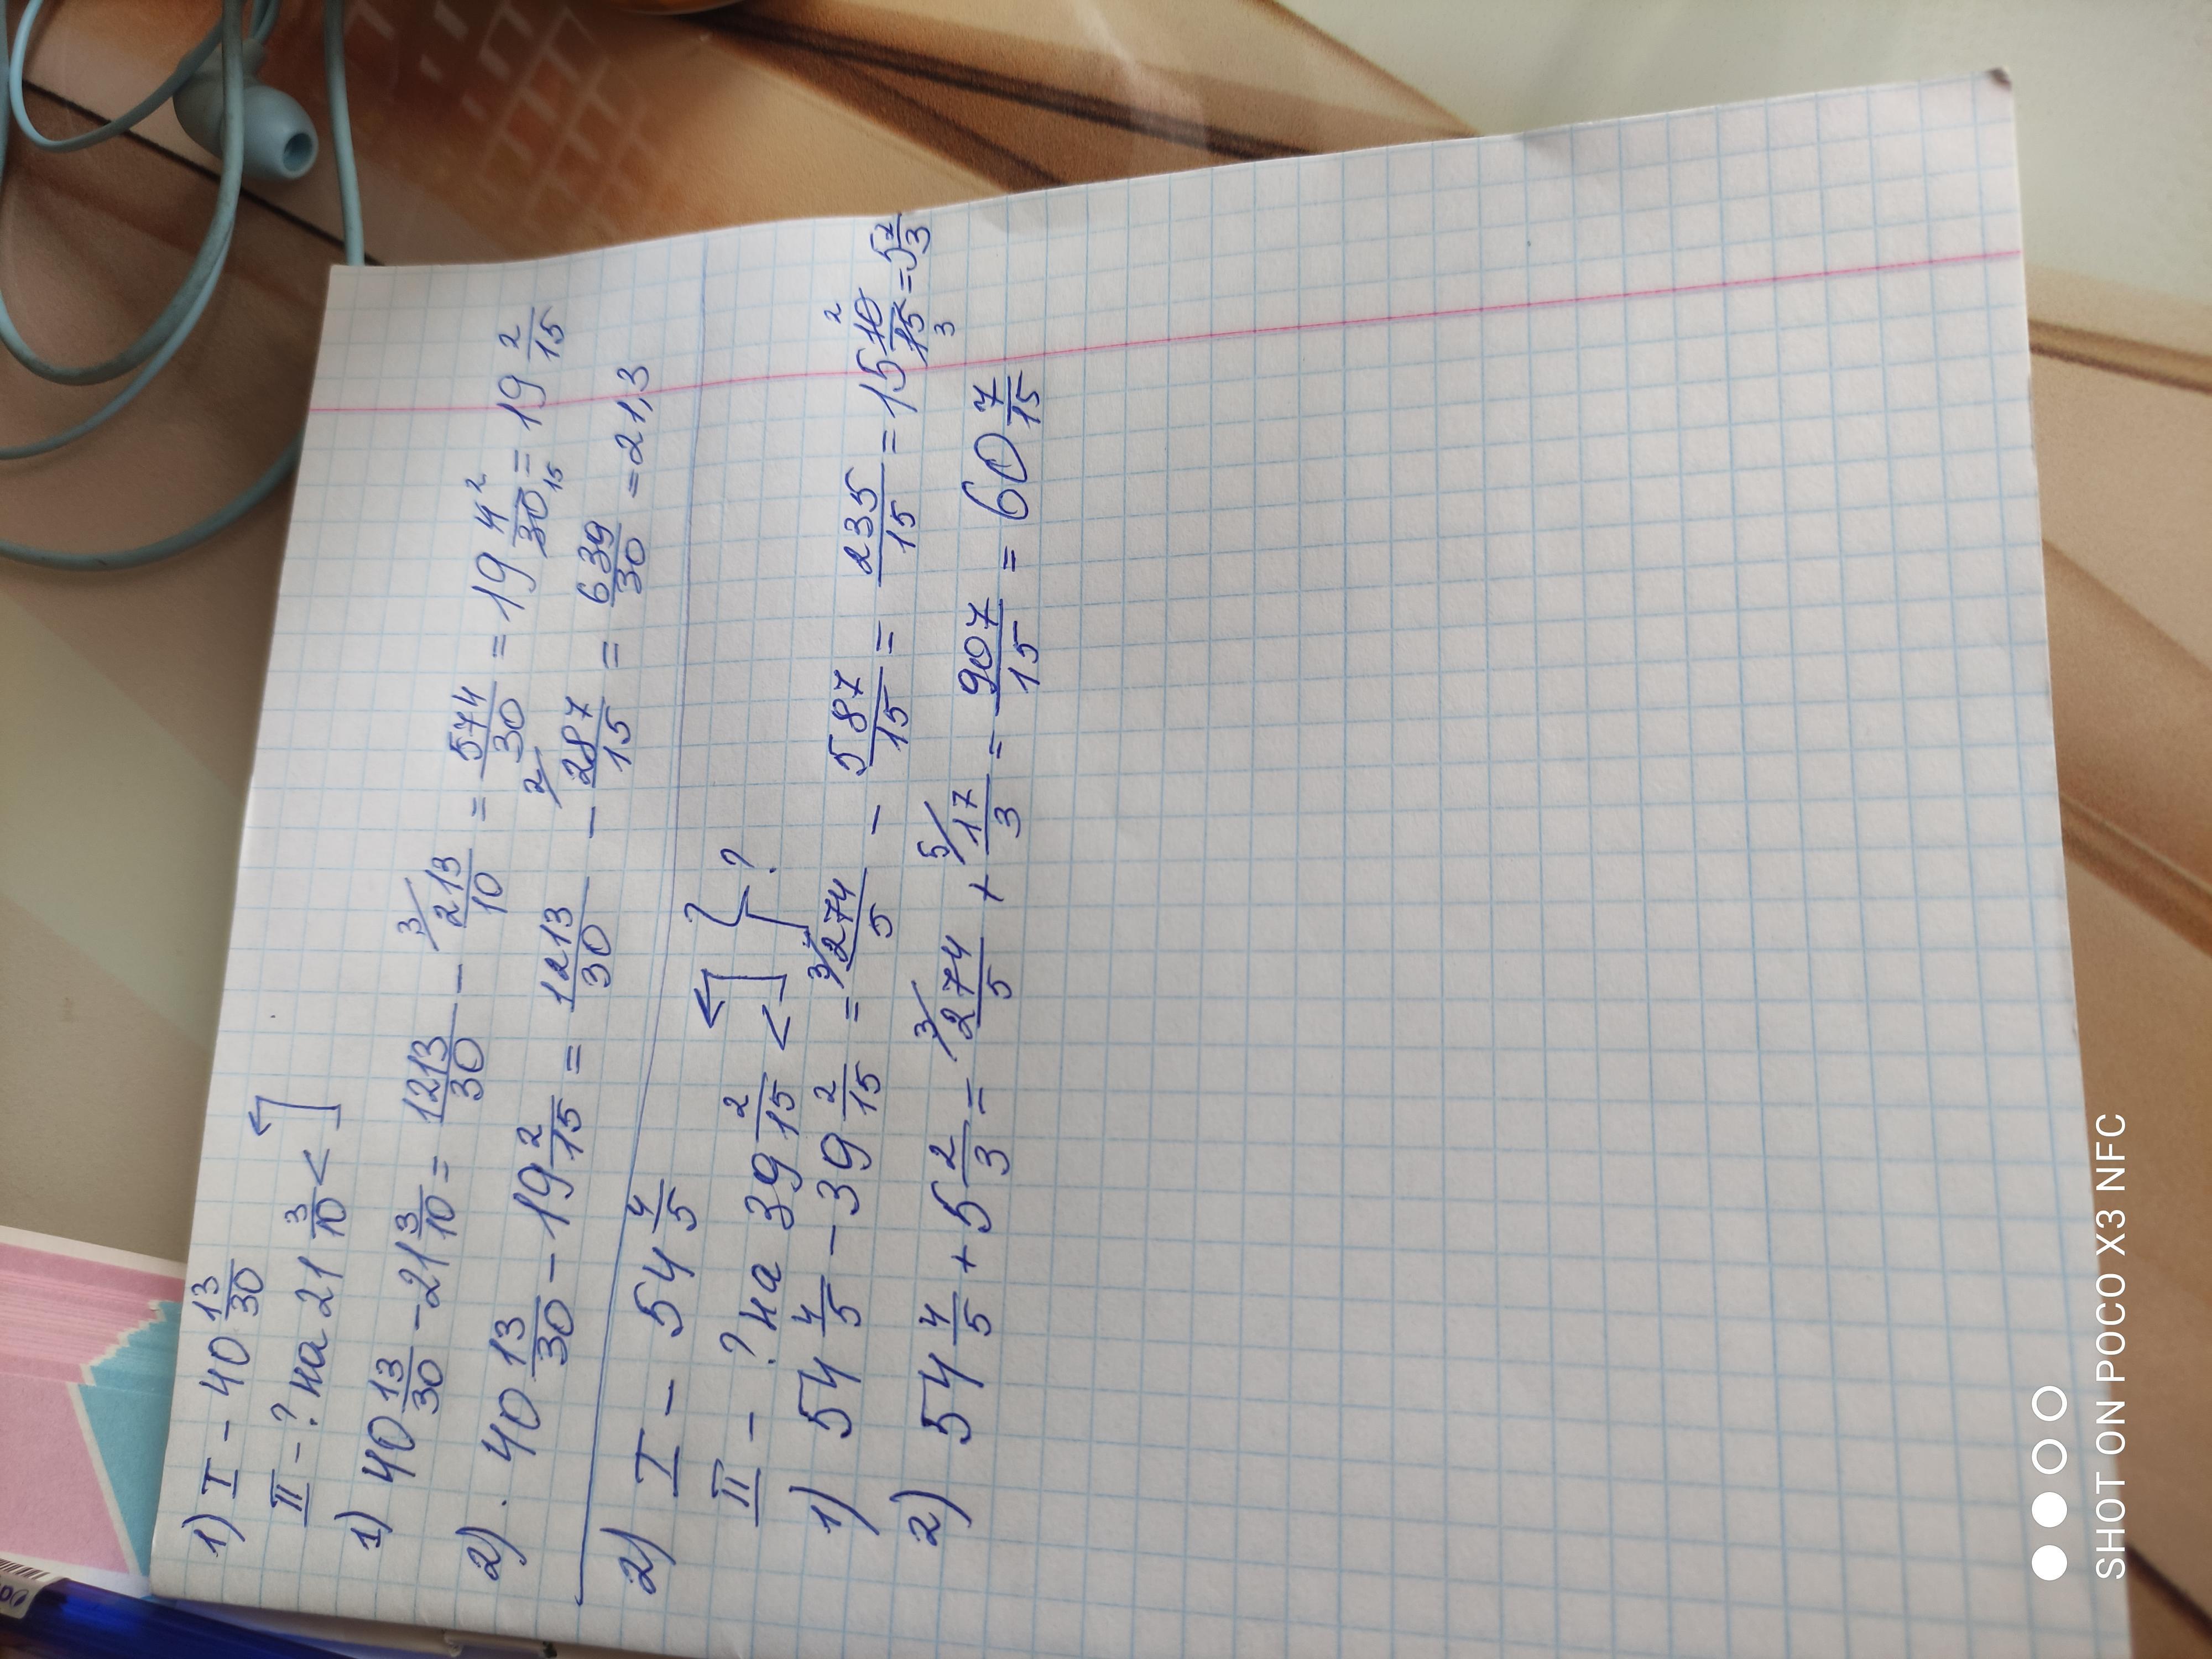 1) I - 40 13/30
II - ? на 21 3/10 <
1) 40 13/30 - 21 3/10 = 1213/30 - 3/ 213/10 = 574/30 = 19 4 2/30 15 = 19 2/15
2). 40 13/30 - 19 2/15 = 1213/30 - 2/ 287/15 = 639/30 = 21,3
2) I - 54 4/5
II - ? на 39 2/15 < } ?
1) 54 4/5 - 39 2/15 = 3/ 274/5 - 587/15 = 235/15 = 15 10 2/15 3 = 5 2/3
2) 54 4/5 + 5 2/3 = 3/ 274/5 + 5/ 17/3 = 907/15 = 60 7/15
SHOT ON POCO X3 NFC